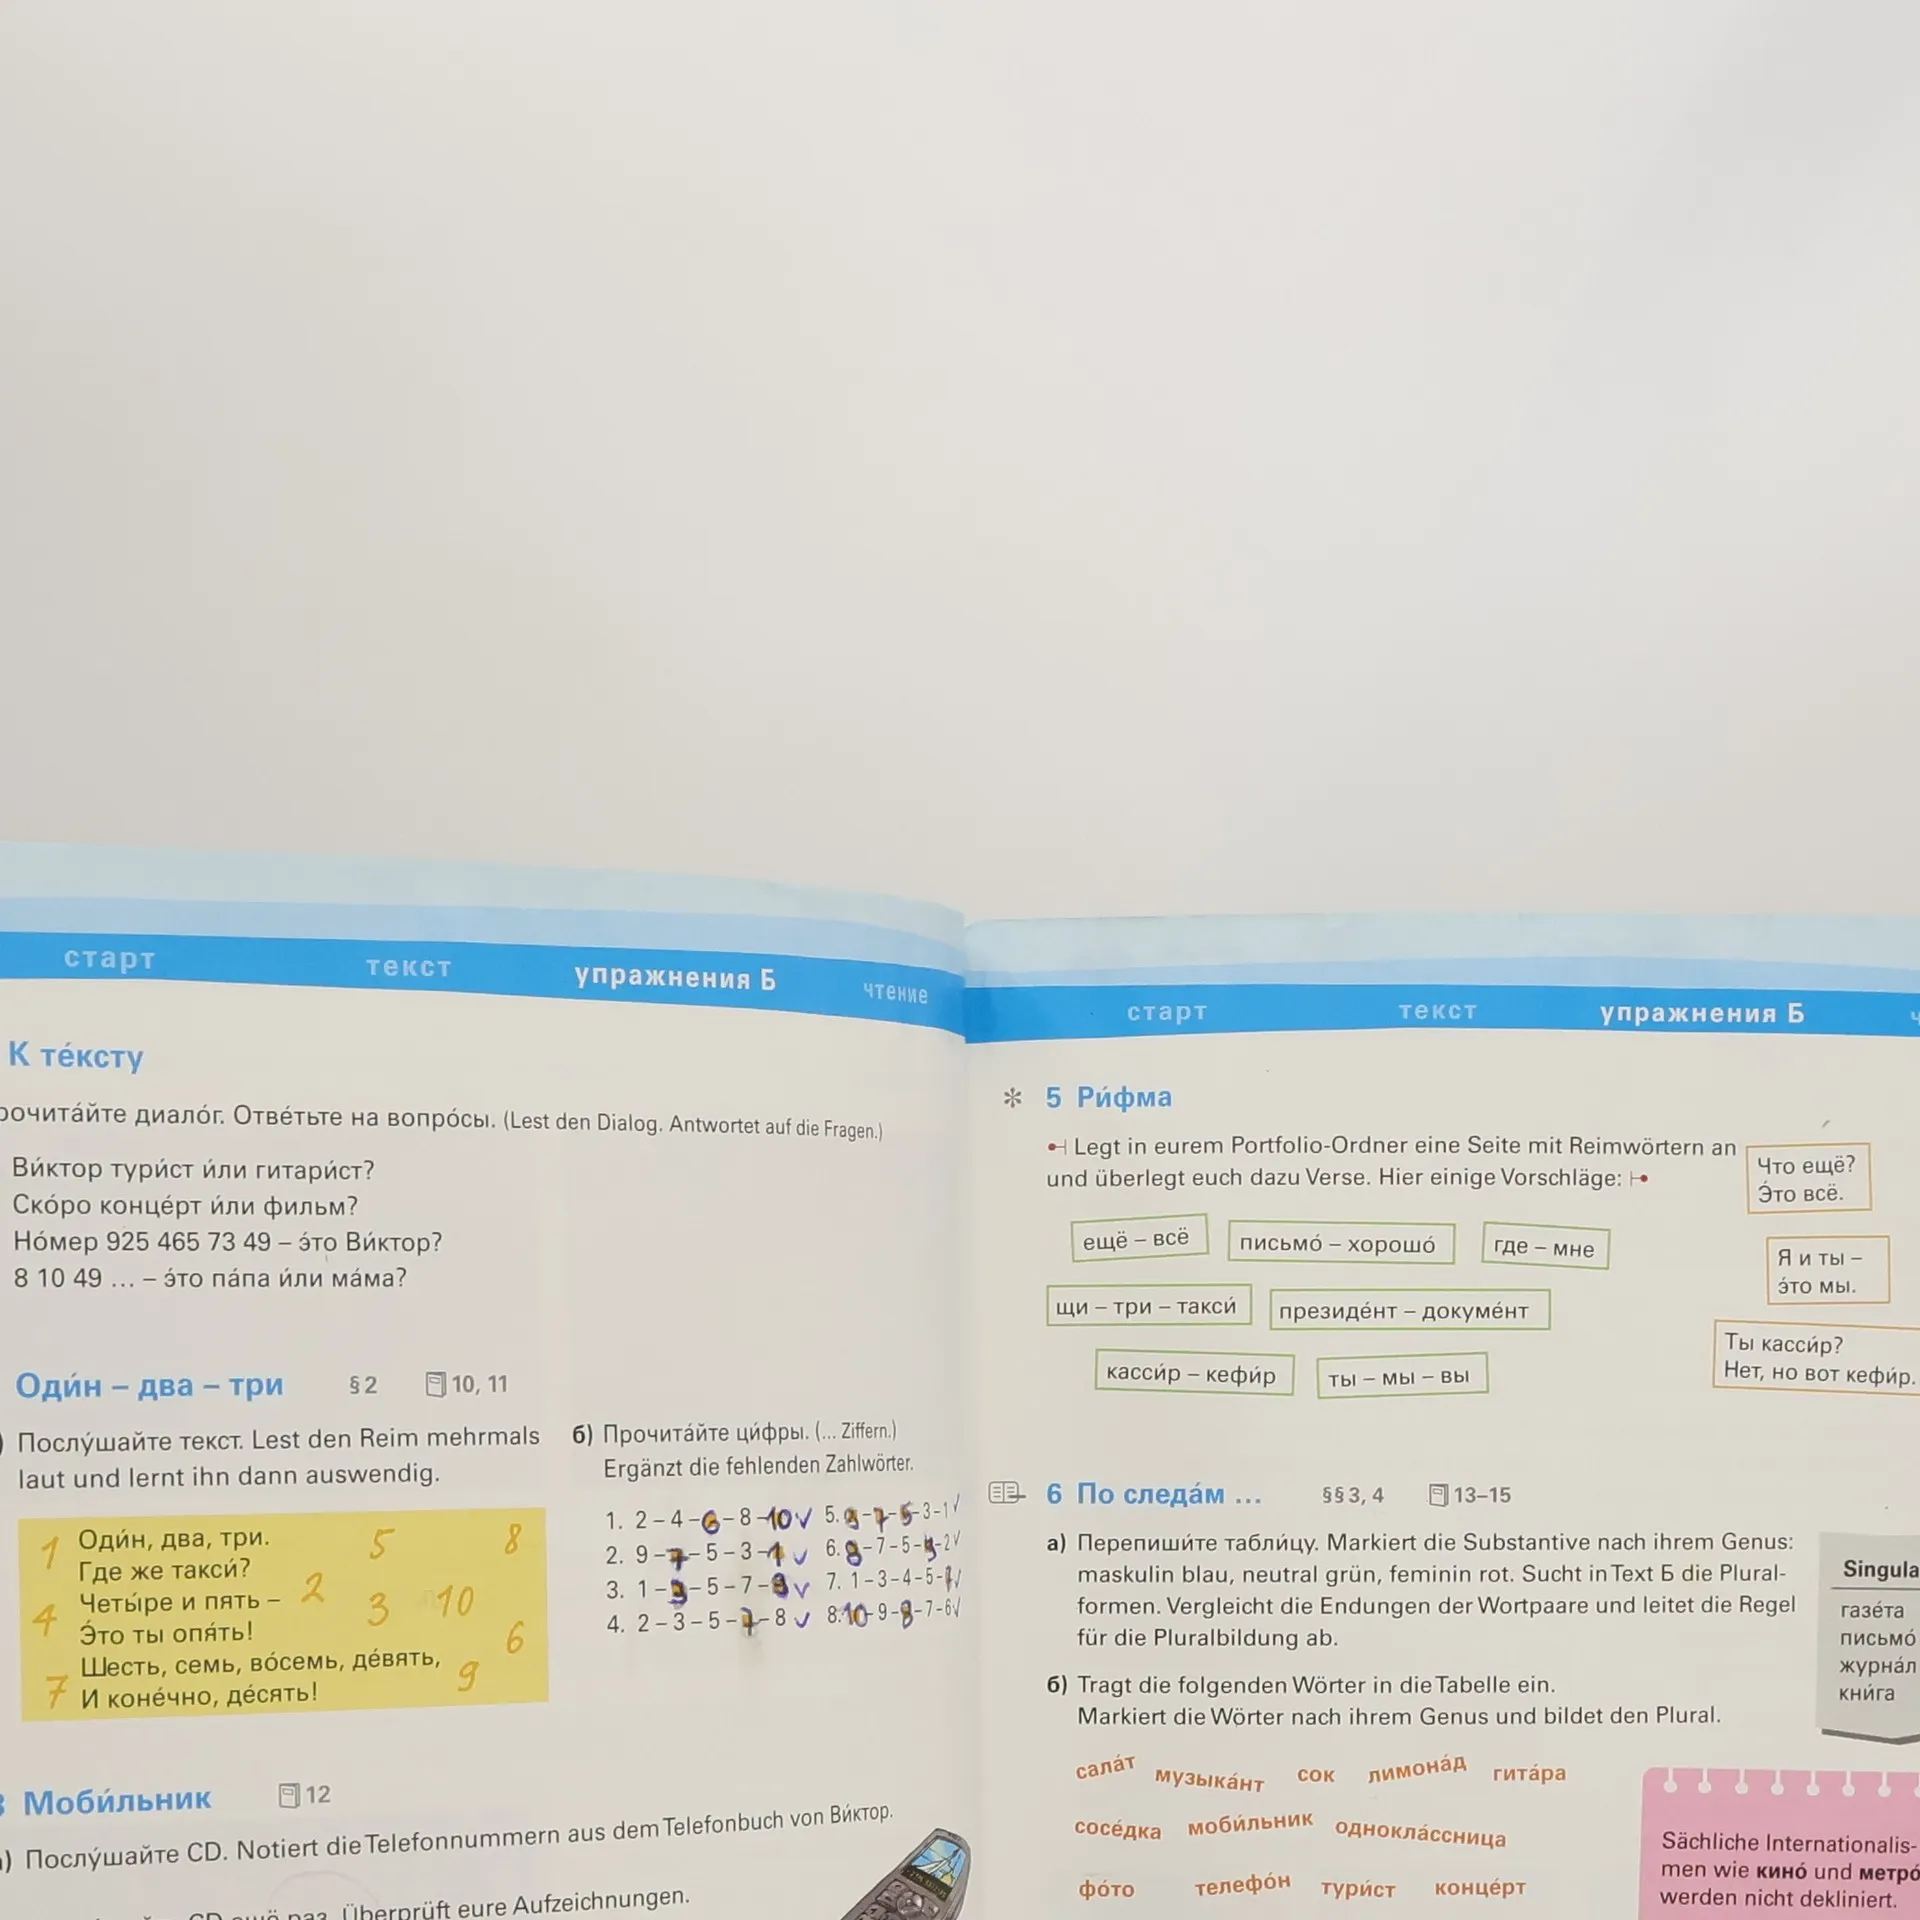 старт текст упражнения Б чтение
К те́ксту
рочита́йте диало́г. Отве́тьте на вопро́сы. (Lest den Dialog. Antwortet auf die Fragen.)
Ви́ктор тури́ст и́ли гитари́ст?
Ско́ро конце́рт и́ли фильм?
Но́мер 925 465 73 49 – э́то Ви́ктор?
8 10 49 ... – э́то па́па и́ли ма́ма?
Оди́н – два – три §2 10, 11
) Послу́шайте текст. Lest den Reim mehrmals
laut und lernt ihn dann auswendig.
1 Оди́н, два, три. 5 8
Где же такси́?
4 Четы́ре и пять – 2 3 10
Э́то ты опя́ть!
Шесть, семь, во́семь, де́вять, 9 6
7 И коне́чно, де́сять!
б) Прочита́йте ци́фры. (... Ziffern.)
Ergänzt die fehlenden Zahlwörter.
1. 2 – 4 – 6 – 8 – 10 ✓ 5. 9 – 7 – 5 – 3 – 1 ✓
2. 9 – 7 – 5 – 3 – 1 ✓ 6. 8 – 7 – 5 – – 2 ✓
3. 1 – 3 – 5 – 7 – 9 ✓ 7. 1 – 3 – 4 – 5 – ✓
4. 2 – 3 – 5 – 7 – 8 ✓ 8. 10 – 9 – 8 – 7 – 6 ✓
3 Моби́льник 12
) Послу́шайте CD. Notiert die Telefonnummern aus dem Telefonbuch von Ви́ктор.
CD ещё раз. Überprüft eure Aufzeichnungen.
старт текст упражнения Б
* 5 Ри́фма
Legt in eurem Portfolio-Ordner eine Seite mit Reimwörtern an
und überlegt euch dazu Verse. Hier einige Vorschläge:
ещё – всё письмо́ – хорошо́ где – мне
щи – три – такси́ президе́нт – докуме́нт
касси́р – кефи́р ты – мы – вы
Что ещё?
Э́то всё.
Я и ты –
э́то мы.
Ты касси́р?
Нет, но вот кефи́р.
6 По следа́м ... §§3, 4 13–15
а) Перепиши́те табли́цу. Markiert die Substantive nach ihrem Genus:
maskulin blau, neutral grün, feminin rot. Sucht in Text Б die Plural-
formen. Vergleicht die Endungen der Wortpaare und leitet die Regel
für die Pluralbildung ab.
б) Tragt die folgenden Wörter in die Tabelle ein.
Markiert die Wörter nach ihrem Genus und bildet den Plural.
сала́т музыка́нт сок лимона́д гита́ра
сосе́дка моби́льник однокла́ссница
фо́то телефо́н тури́ст конце́рт
Singula
газе́та
письмо́
журна́л
кни́га
Sächliche Internationalis-
men wie кино́ und метро́
werden nicht dekliniert.